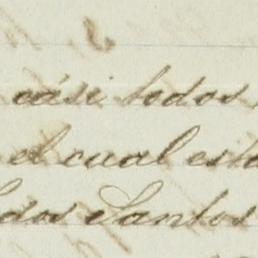 cási todos
el cual esta
dos Santos